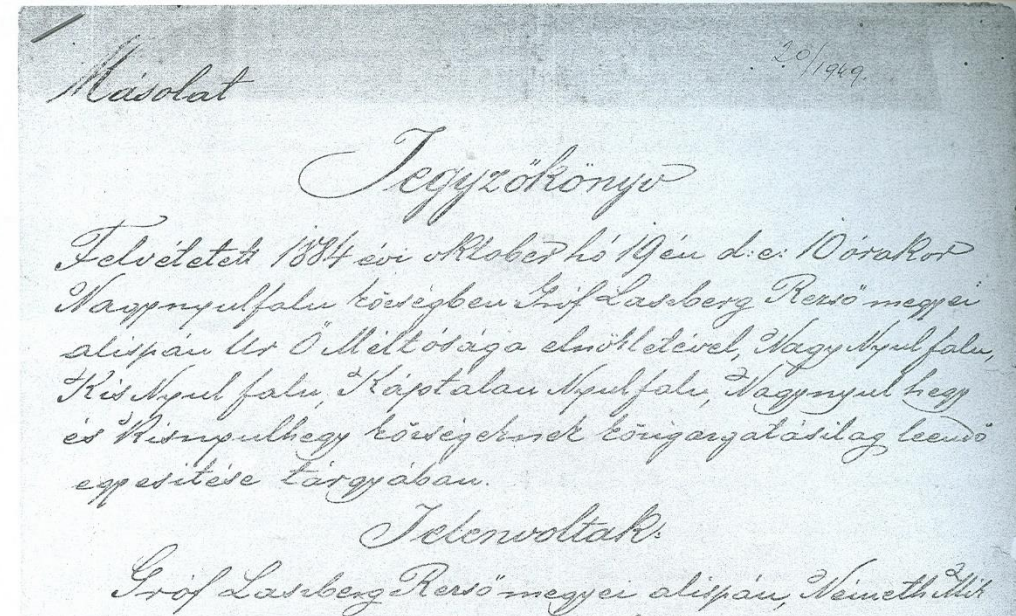 20/1949.
Másolat
Jegyzőkönyv
Felvétetett 1884 évi oktober hó 19én d.e: 10 órakor
Nagynyulfalu községben Gróf Laszberg Rezső megyei
alispán Ur Ő Méltósága elnökletével, Nagy Nyul falu,
Kis Nyul falu, Káptalan Nyul falu, Nagynyul hegy
és Kisnyulhegy községeknek közigazgatásilag leendő
egyesitése tárgyában.
Jelenvoltak:
Gróf Laszberg Rezső megyei alispán, Németh Mik